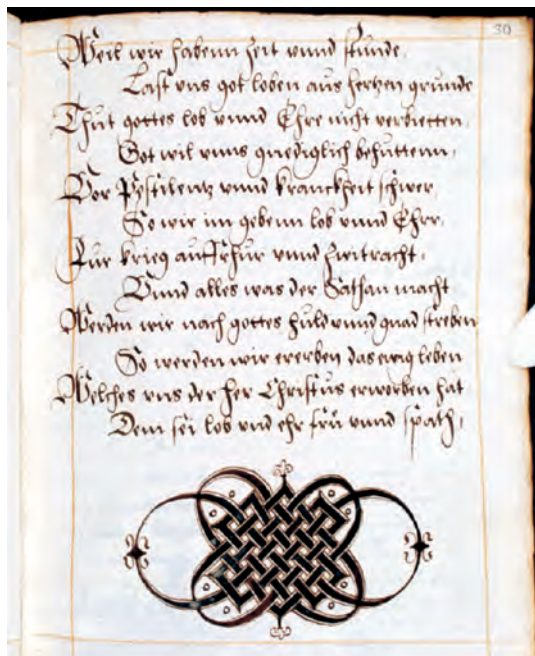 30
Weil wir habenn Zeit vnnd stunde,
Last vns got loben aus hertzen grunde
Thut gottes lob vnnd Ehre nicht verbietten,
Got wil vnns gnediglich behuttenn,
Vor Pestilentz vnnd kranckheit schwer,
So wir im gebenn lob vnnd Ehrr,
Zur krieg auffrhur vnnd Zwitracht,
Vnnd alles was der Sathan macht
Werden wir nach gottes huld vnnd gnad streben
So werden wir ererben das ewig leben
Welches vns der her Christus erworben hat
Dem sei lob vnd ehr frü vnnd spath,